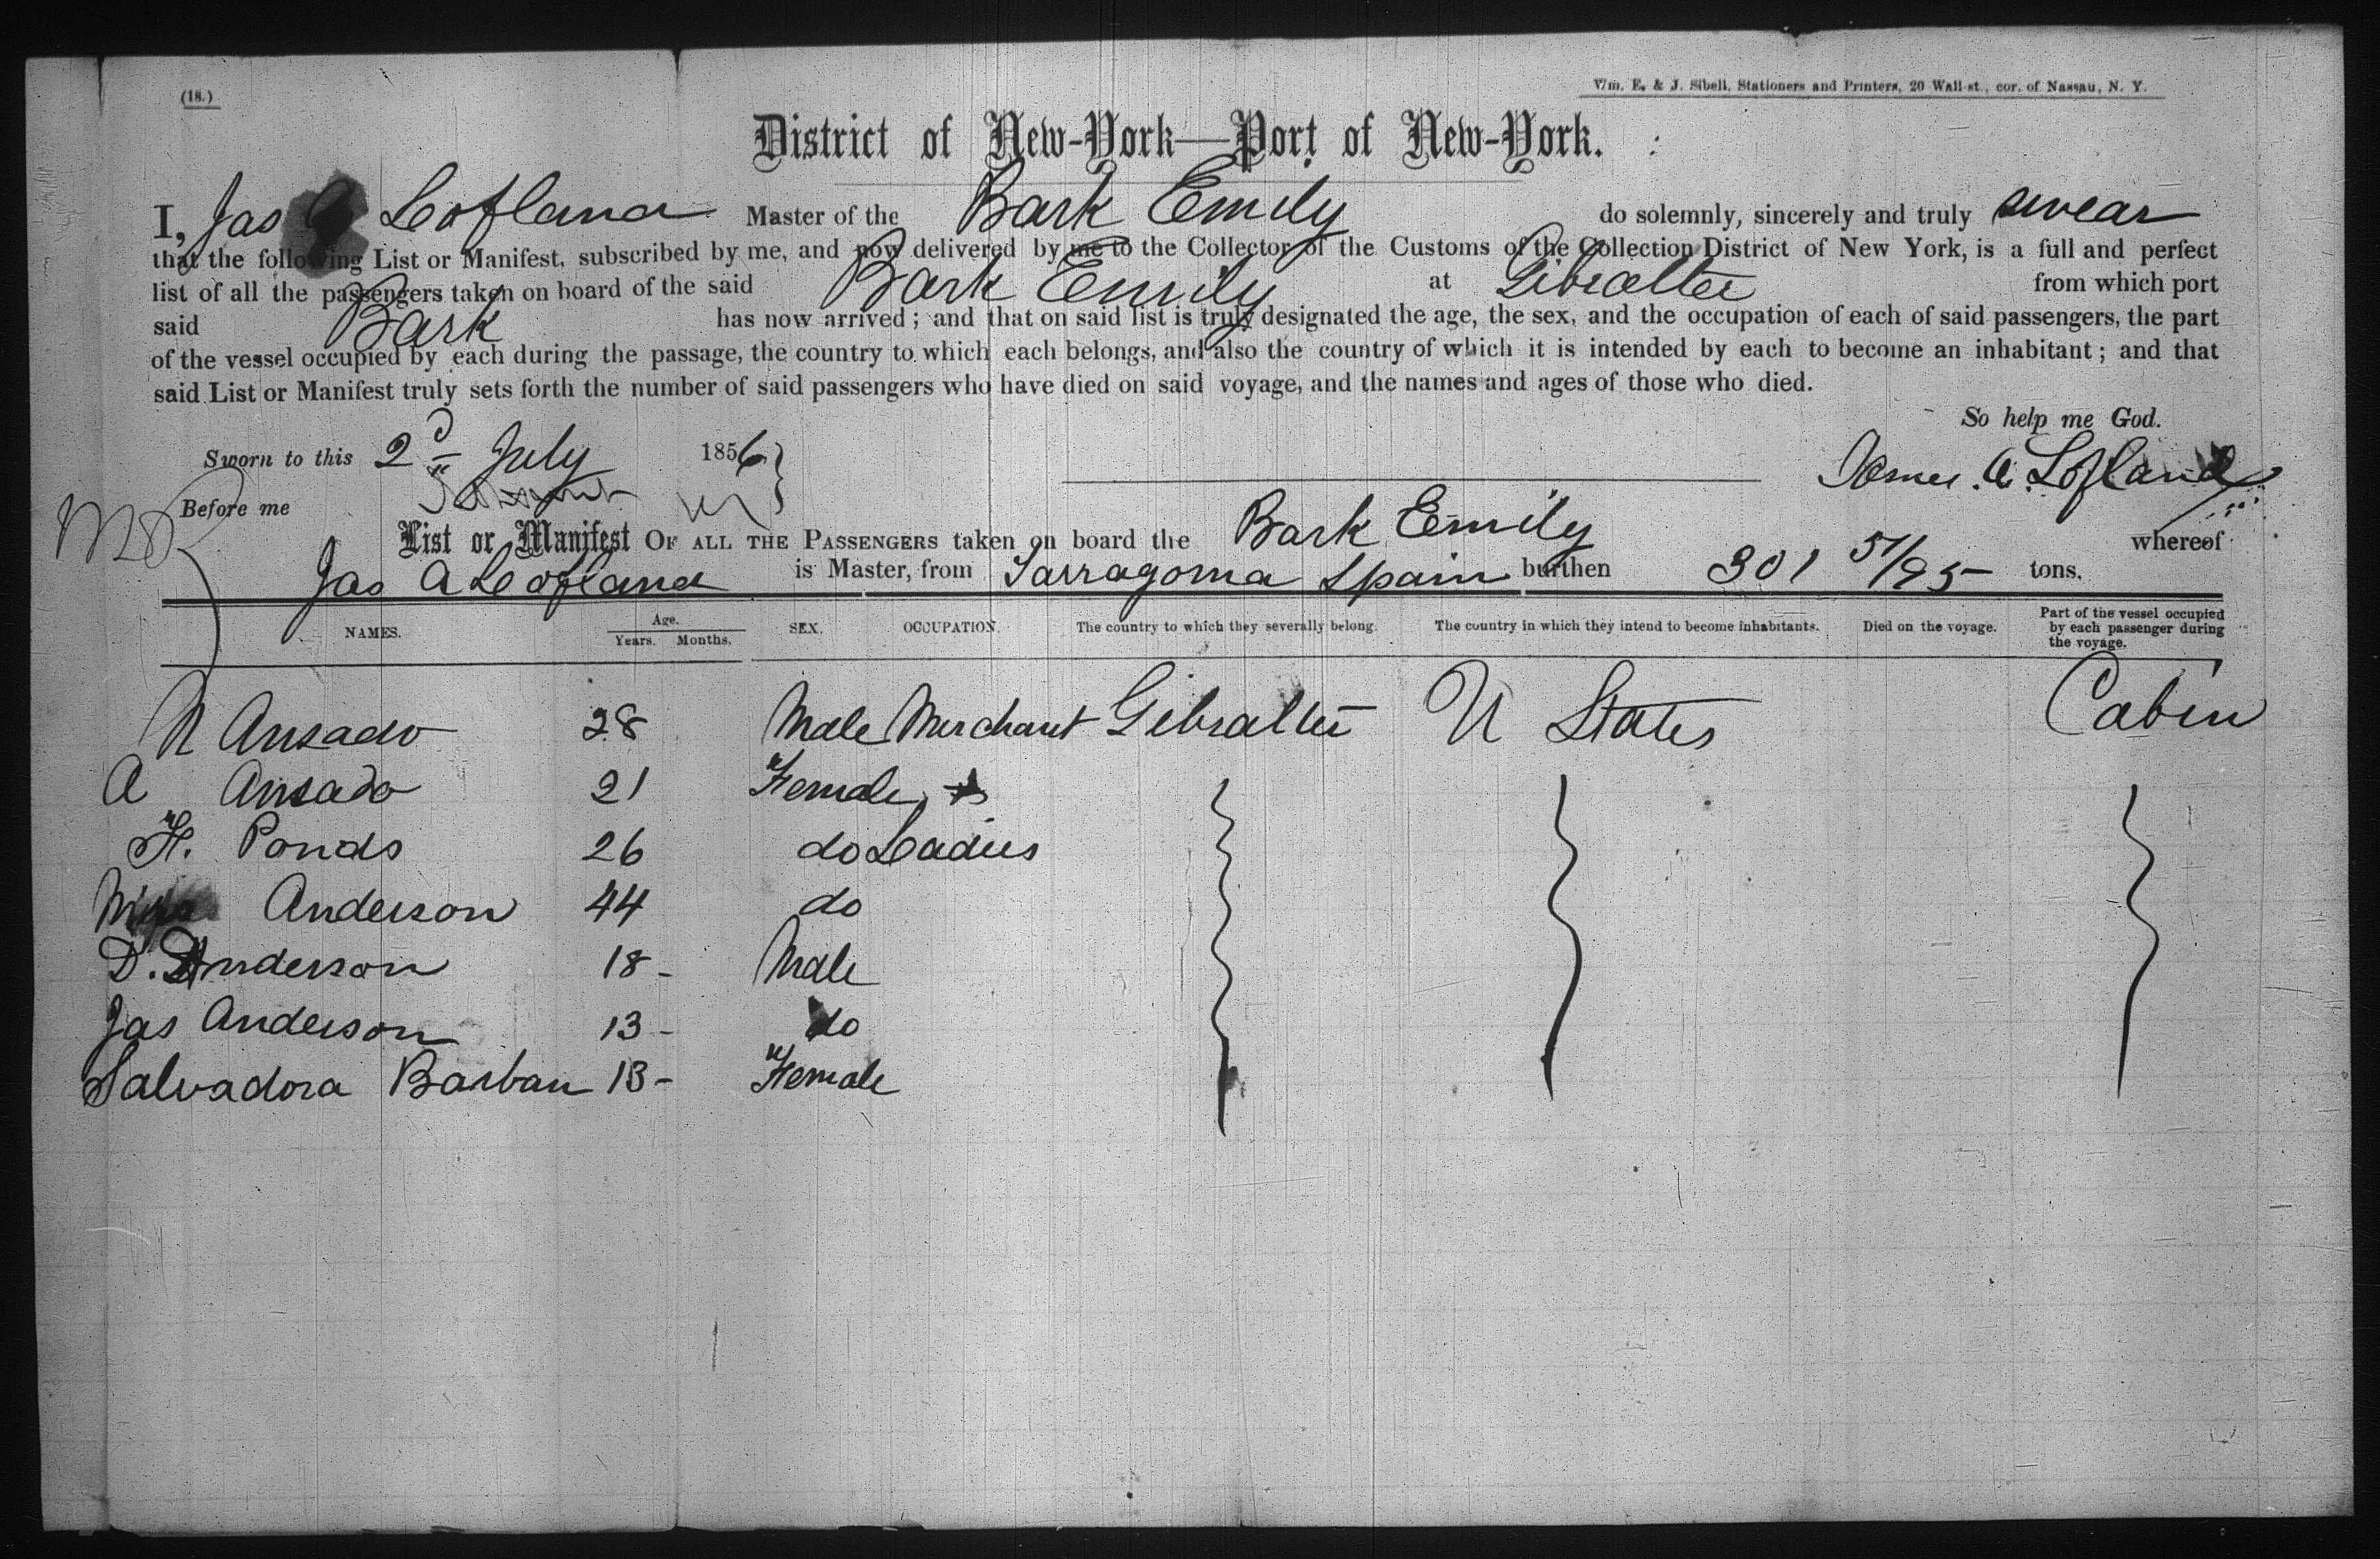 (18.)
Wm. E. & J. Sibell, Stationers and Printers, 20 Wall-st., cor. of Nassau, N. Y.
District of New-York—Port of New-York.
I, Jas A Leofland Master of the Bark Emily do solemnly, sincerely and truly swear
that the following List or Manifest, subscribed by me, and now delivered by me to the Collector of the Customs of the Collection District of New York, is a full and perfect
list of all the passengers taken on board of the said Bark Emily at Gibralter from which port
said Bark has now arrived; and that on said list is truly designated the age, the sex, and the occupation of each of said passengers, the part
of the vessel occupied by each during the passage, the country to which each belongs, and also the country of which it is intended by each to become an inhabitant; and that
said List or Manifest truly sets forth the number of said passengers who have died on said voyage, and the names and ages of those who died.
So help me God.
Sworn to this 2d July 1856
James A. Lofland
Before me
List or Manifest OF ALL THE PASSENGERS taken on board the Bark Emily whereof
Jas A Leofland is Master, from Tarragona Spain burthen 301 51/95 tons.
NAMES. Age. Years. Months. SEX. OCCUPATION. The country to which they severally belong. The country in which they intend to become inhabitants. Died on the voyage. Part of the vessel occupied by each passenger during the voyage.
N Ansado 28 Male Merchant Gibralter U States Cabin
A Ansado 21 Female
H. Ponds 26 do Ladies
Anderson 44 do
D. Anderson 18 - Male
Jas Anderson 13 - do
Salvadora Barbau 13 - Female